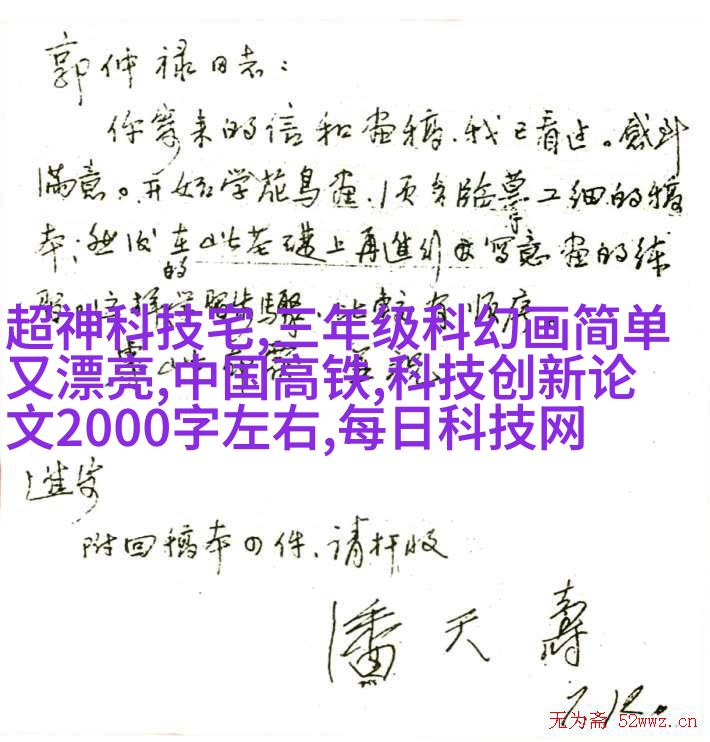 郭仲禄同志：
你寄来的信和画稿，我已看过。感到
满意。开始学花鸟画，须多临摹工细的稿
本；然后在此基础上再进行写意画的练
的
超神科技宅,三年级科幻画简单
又漂亮,中国高铁,科技创新论
文2000字左右,每日科技网
进安
附回稿本四件、请检收
潘天寿
7.12.
无为斋 52wwz.cn